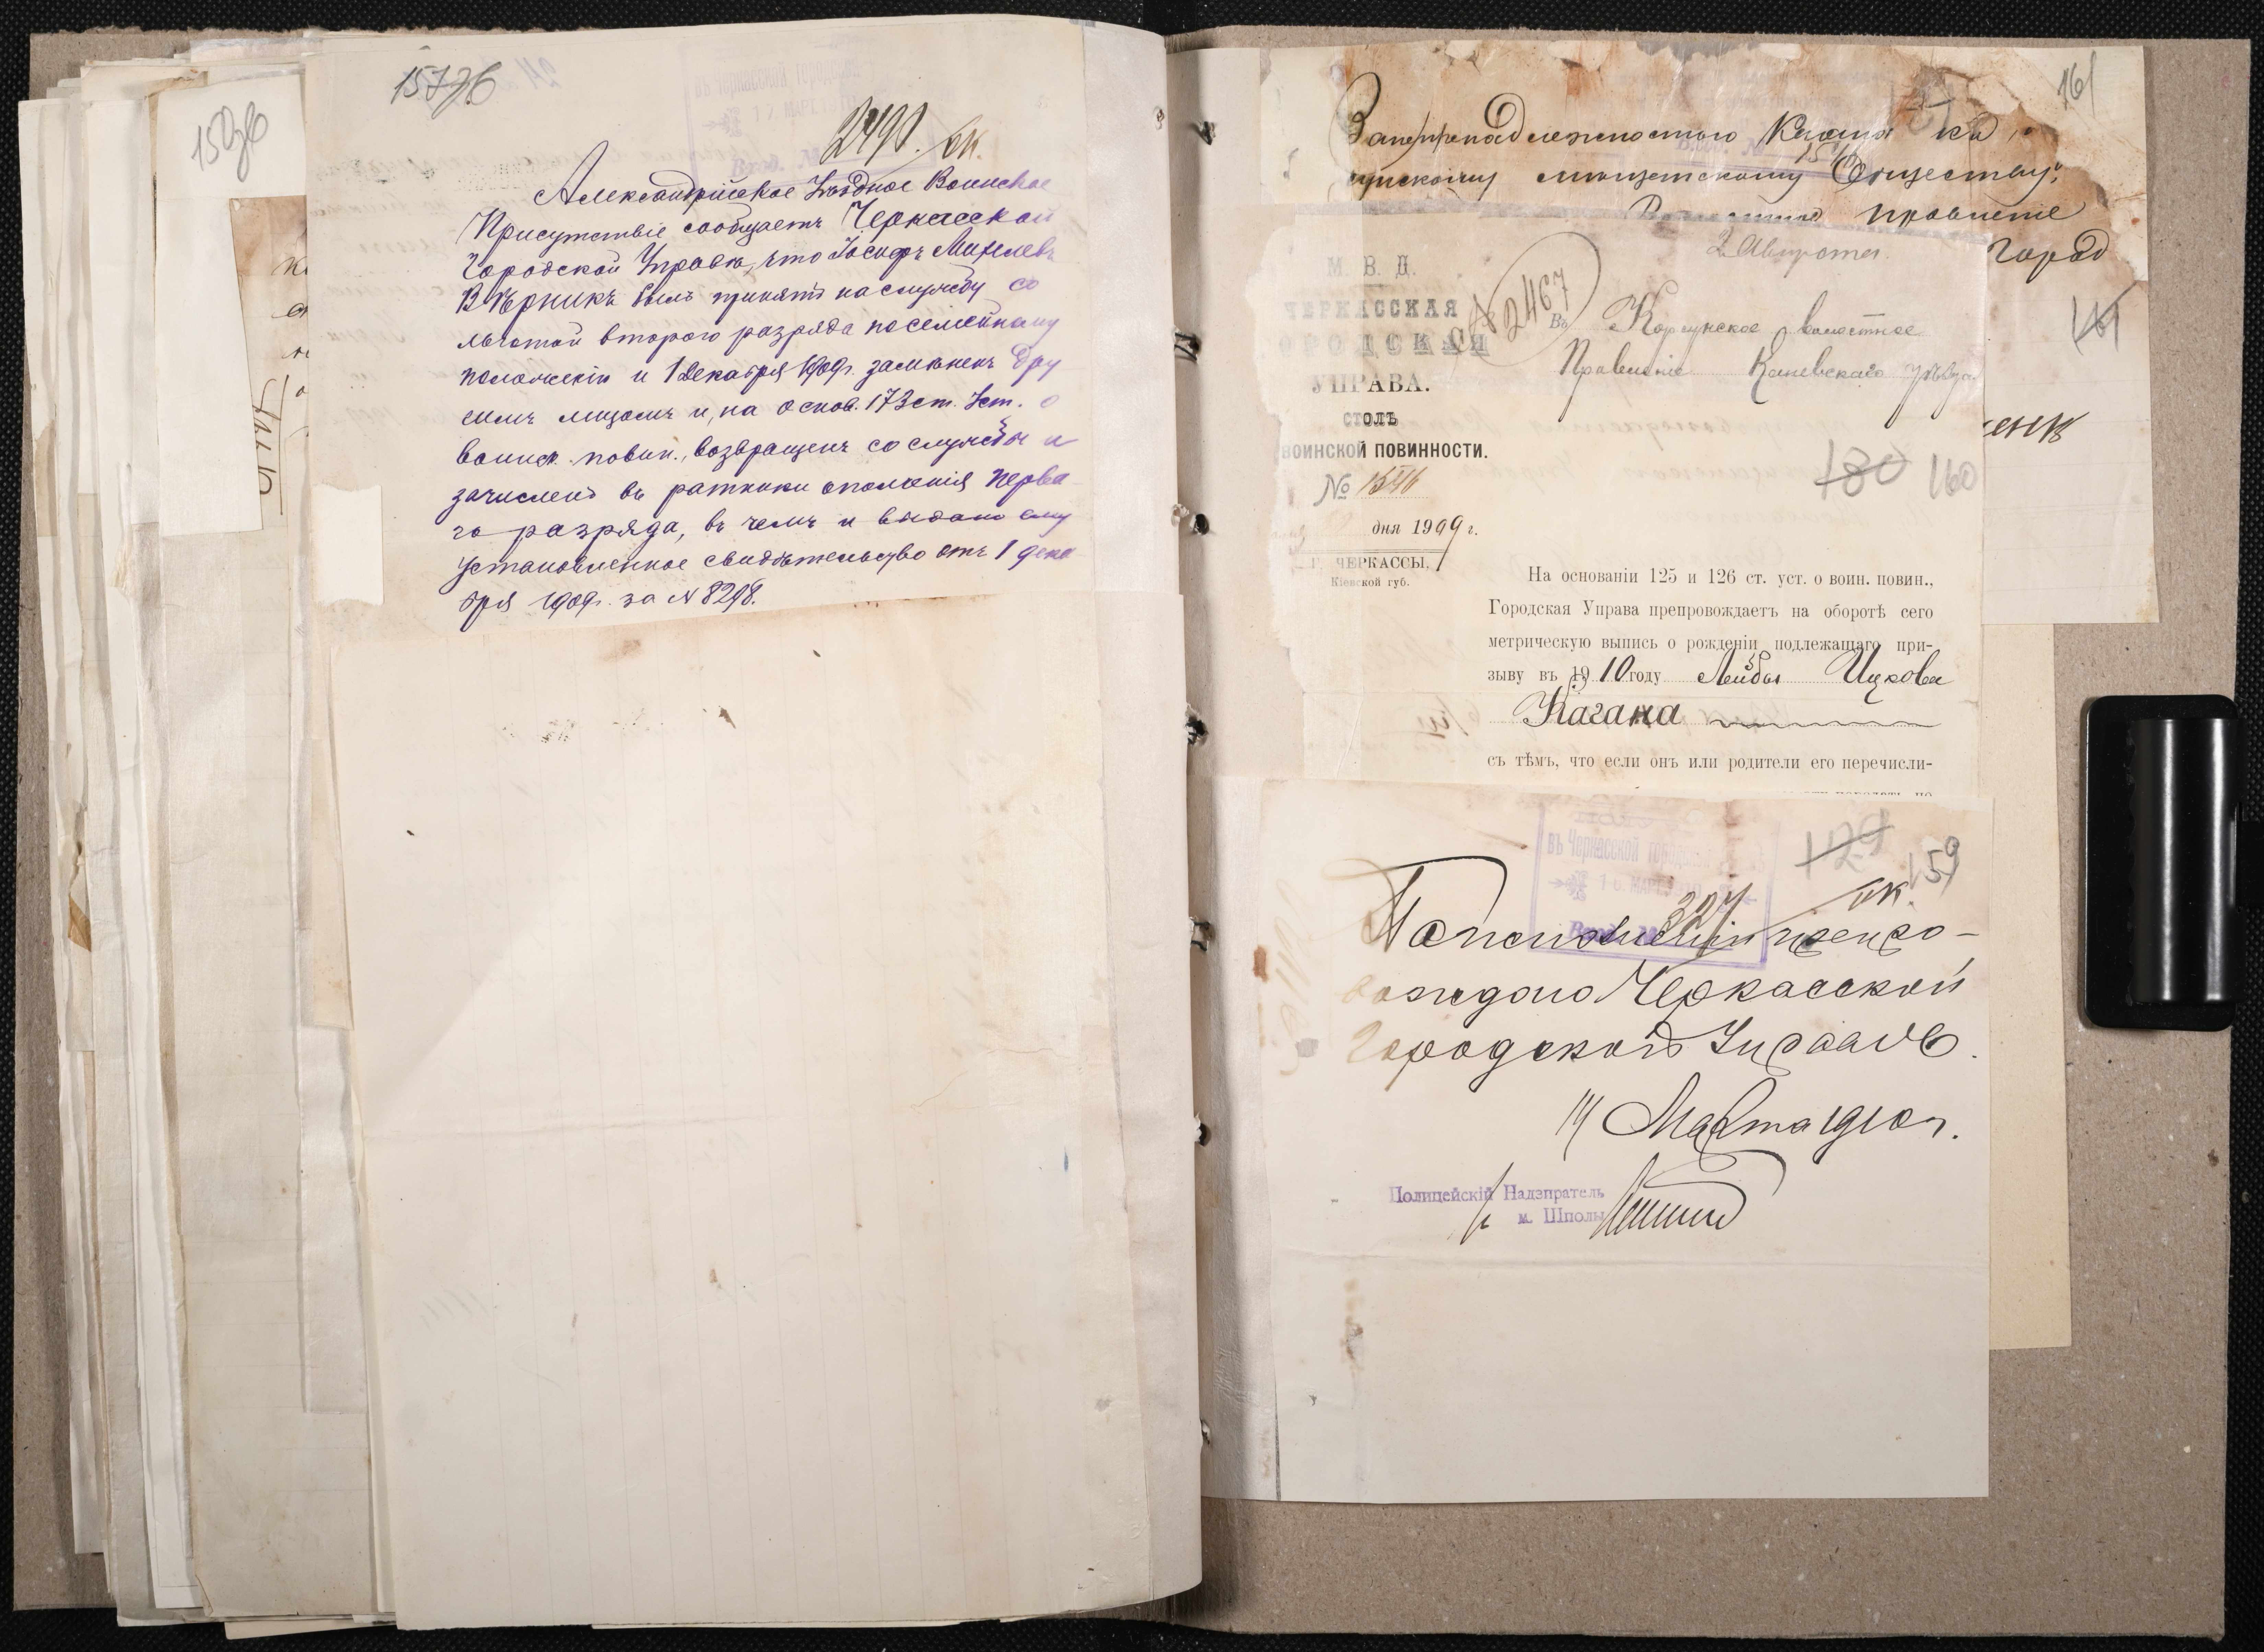 157об
158об
2490. вк.
Александрійское Уѣздное Воинское
Присутствіе сообщаетъ Черкасской
Городской Управѣ, что Іосифъ Михелевъ
Вѣрникъ былъ принятъ на службу со
льготой второго разряда по семейному
положенію и 1 Декабря 1909г. замѣненъ дру
гимъ лицомъ и, на основ. 173 ст. Уст. о
воинск. повин., возвращенъ со службы и
зачисленъ въ ратники ополченія перва
го разряда, въ чемъ и выдано ему
установленное свидѣтельство отъ 1 дека
бря 1909г. за № 8298.
161
За непринадлежностью Кагана къ
мѣщанскому Обществу,
правленіе
Город
161
2 Августа
М. В. Д.
ЧЕРКАССКАЯ
ГОРОДСКАЯ
УПРАВА.
СТОЛЪ
ВОИНСКОЙ ПОВИННОСТИ.
№ 1546
дня 1909 г.
Г. ЧЕРКАССЫ,
Кіевской губ.
2467
Въ Корсунское волостное
Правленіе Каневскаго уѣзда.
180 160
На основаніи 125 и 126 ст. уст. о воин. повин.,
Городская Управа препровождаетъ на оборотѣ сего
метрическую выпись о рожденіи подлежащаго при-
зыву въ 1910 году Лейбы Ицкова
Кагана
съ тѣмъ, что если онъ или родители его перечисли-
въ Черкасской городской
129 159
327 вк.
По исполненіи препро-
вождаю Черкасской
Городской Управѣ.
14 Марта 1910 г.
Полицейскій Надзиратель
м. Шполы